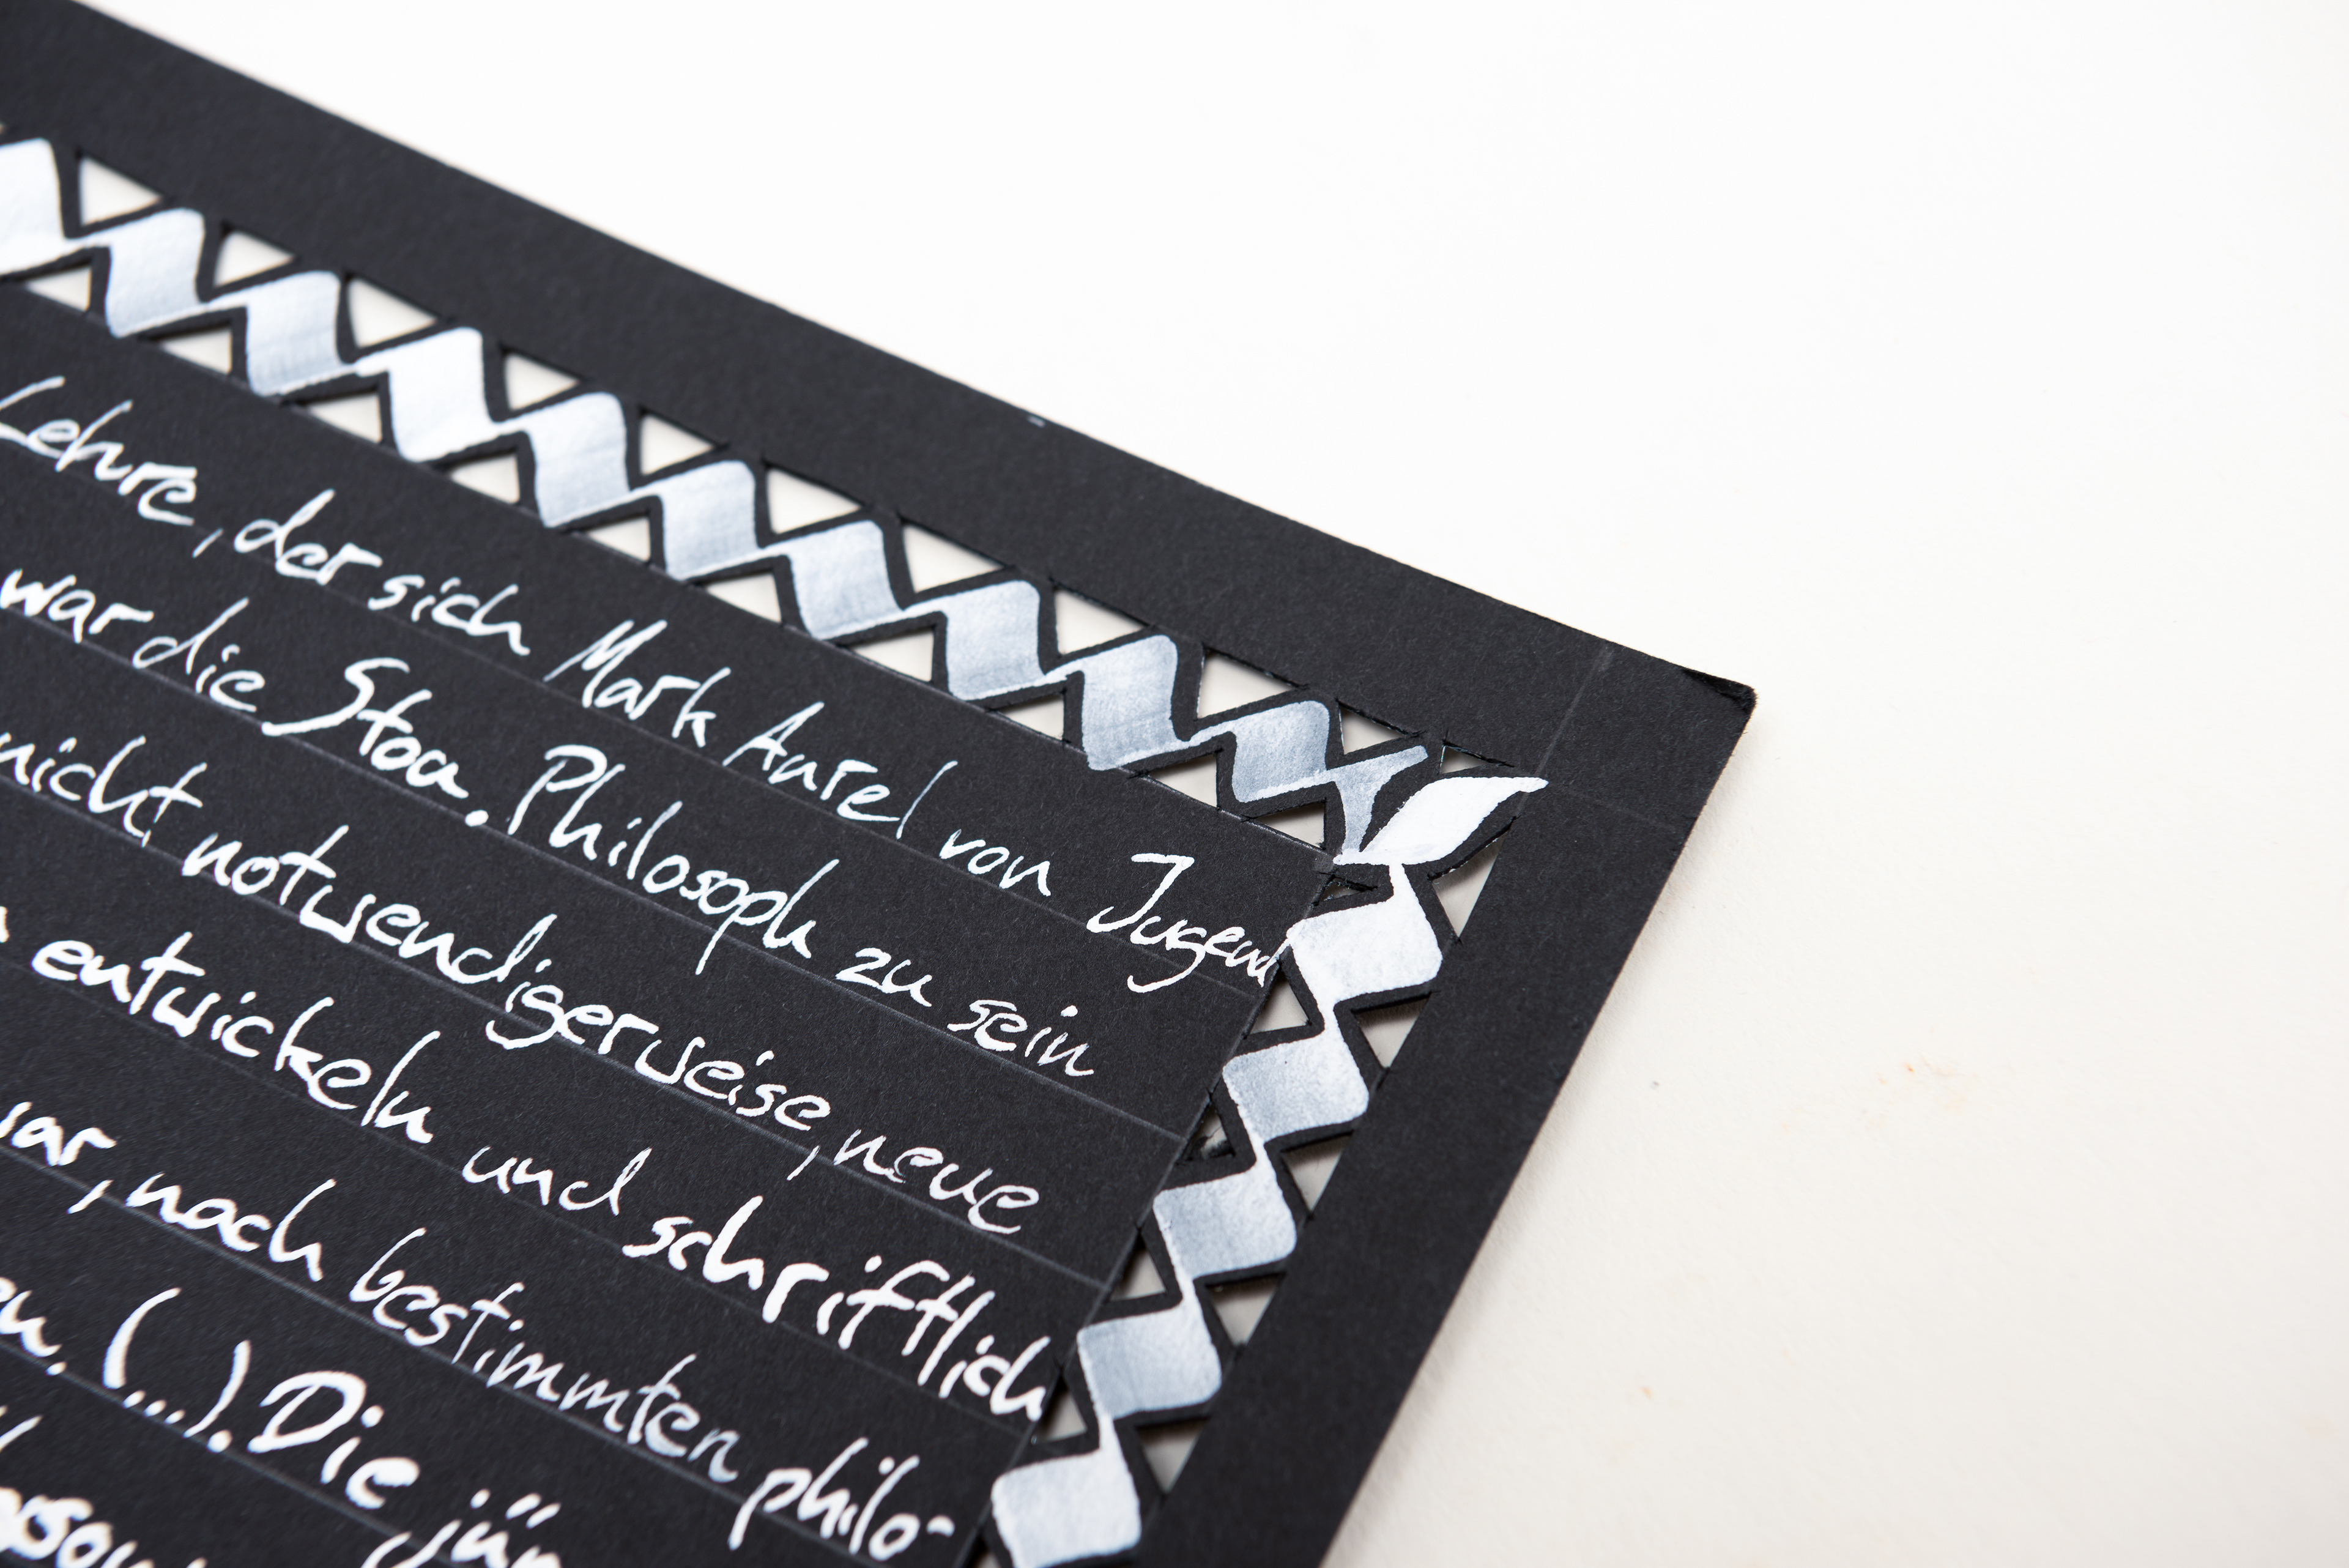 Lehre, der sich Mark Aurel von Jugend
war die Stoa. Philosoph zu sein
nicht notwendigerweise, neue
entwickeln und schriftlich
nach bestimmten philo-
(...). Die